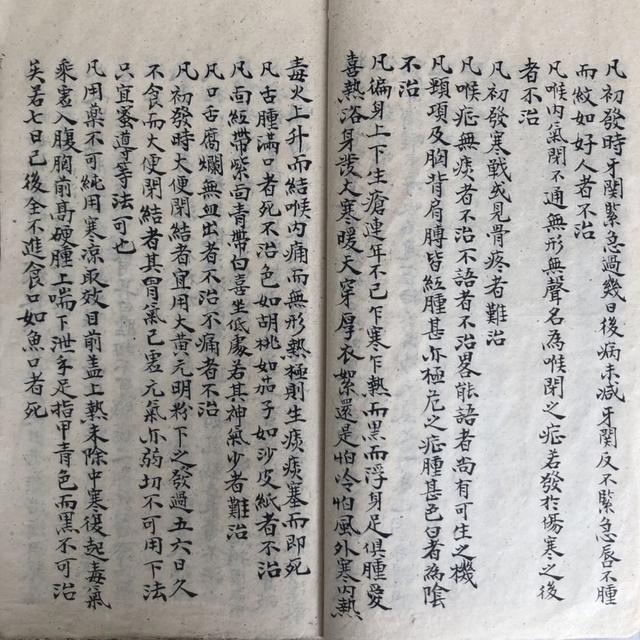 凡初發時牙關緊急過幾日後病未減牙關反不緊急唇不腫
而紋如好人者不治
凡喉内氣閉不通無形無聲名為喉閉之症若發於傷寒之後
者不治
凡初發寒戰或見骨疼者難治
凡喉症無痰者不治不語者不治畧能語者尚有可生之機
凡頸項及胸背肩膊皆紅腫甚亦極危之症腫甚色白者為陰
不治
凡徧身上下生瘡連年不已乍寒乍熱而黑而浮身足俱腫愛
喜熱浴身發大寒暖天穿厚衣絮還是怕冷怕風外寒内熱
毒火上升而結喉内痛而無形熱極則生痰痰塞而即死
凡舌腫滿口者死不治色如胡桃如茄子如沙皮紙者不治
凡面紅帶紫面青帶白喜坐低處若其神氣少者難治
凡口舌腐爛無血出者不治不痛者不治
凡初發時大便閉結者宜用大黄元明粉下之發過五六日久
不食而大便閉結者其胃氣已虛元氣亦弱切不可用下法
只宜蜜導等法可也
凡用藥不可純用寒涼取效目前盖上熱未除中寒復起毒氣
乘虛入腹胸前高硬腫上喘下泄手足指甲青色而黑不可治
矣若七日已後全不進食口如魚口者死